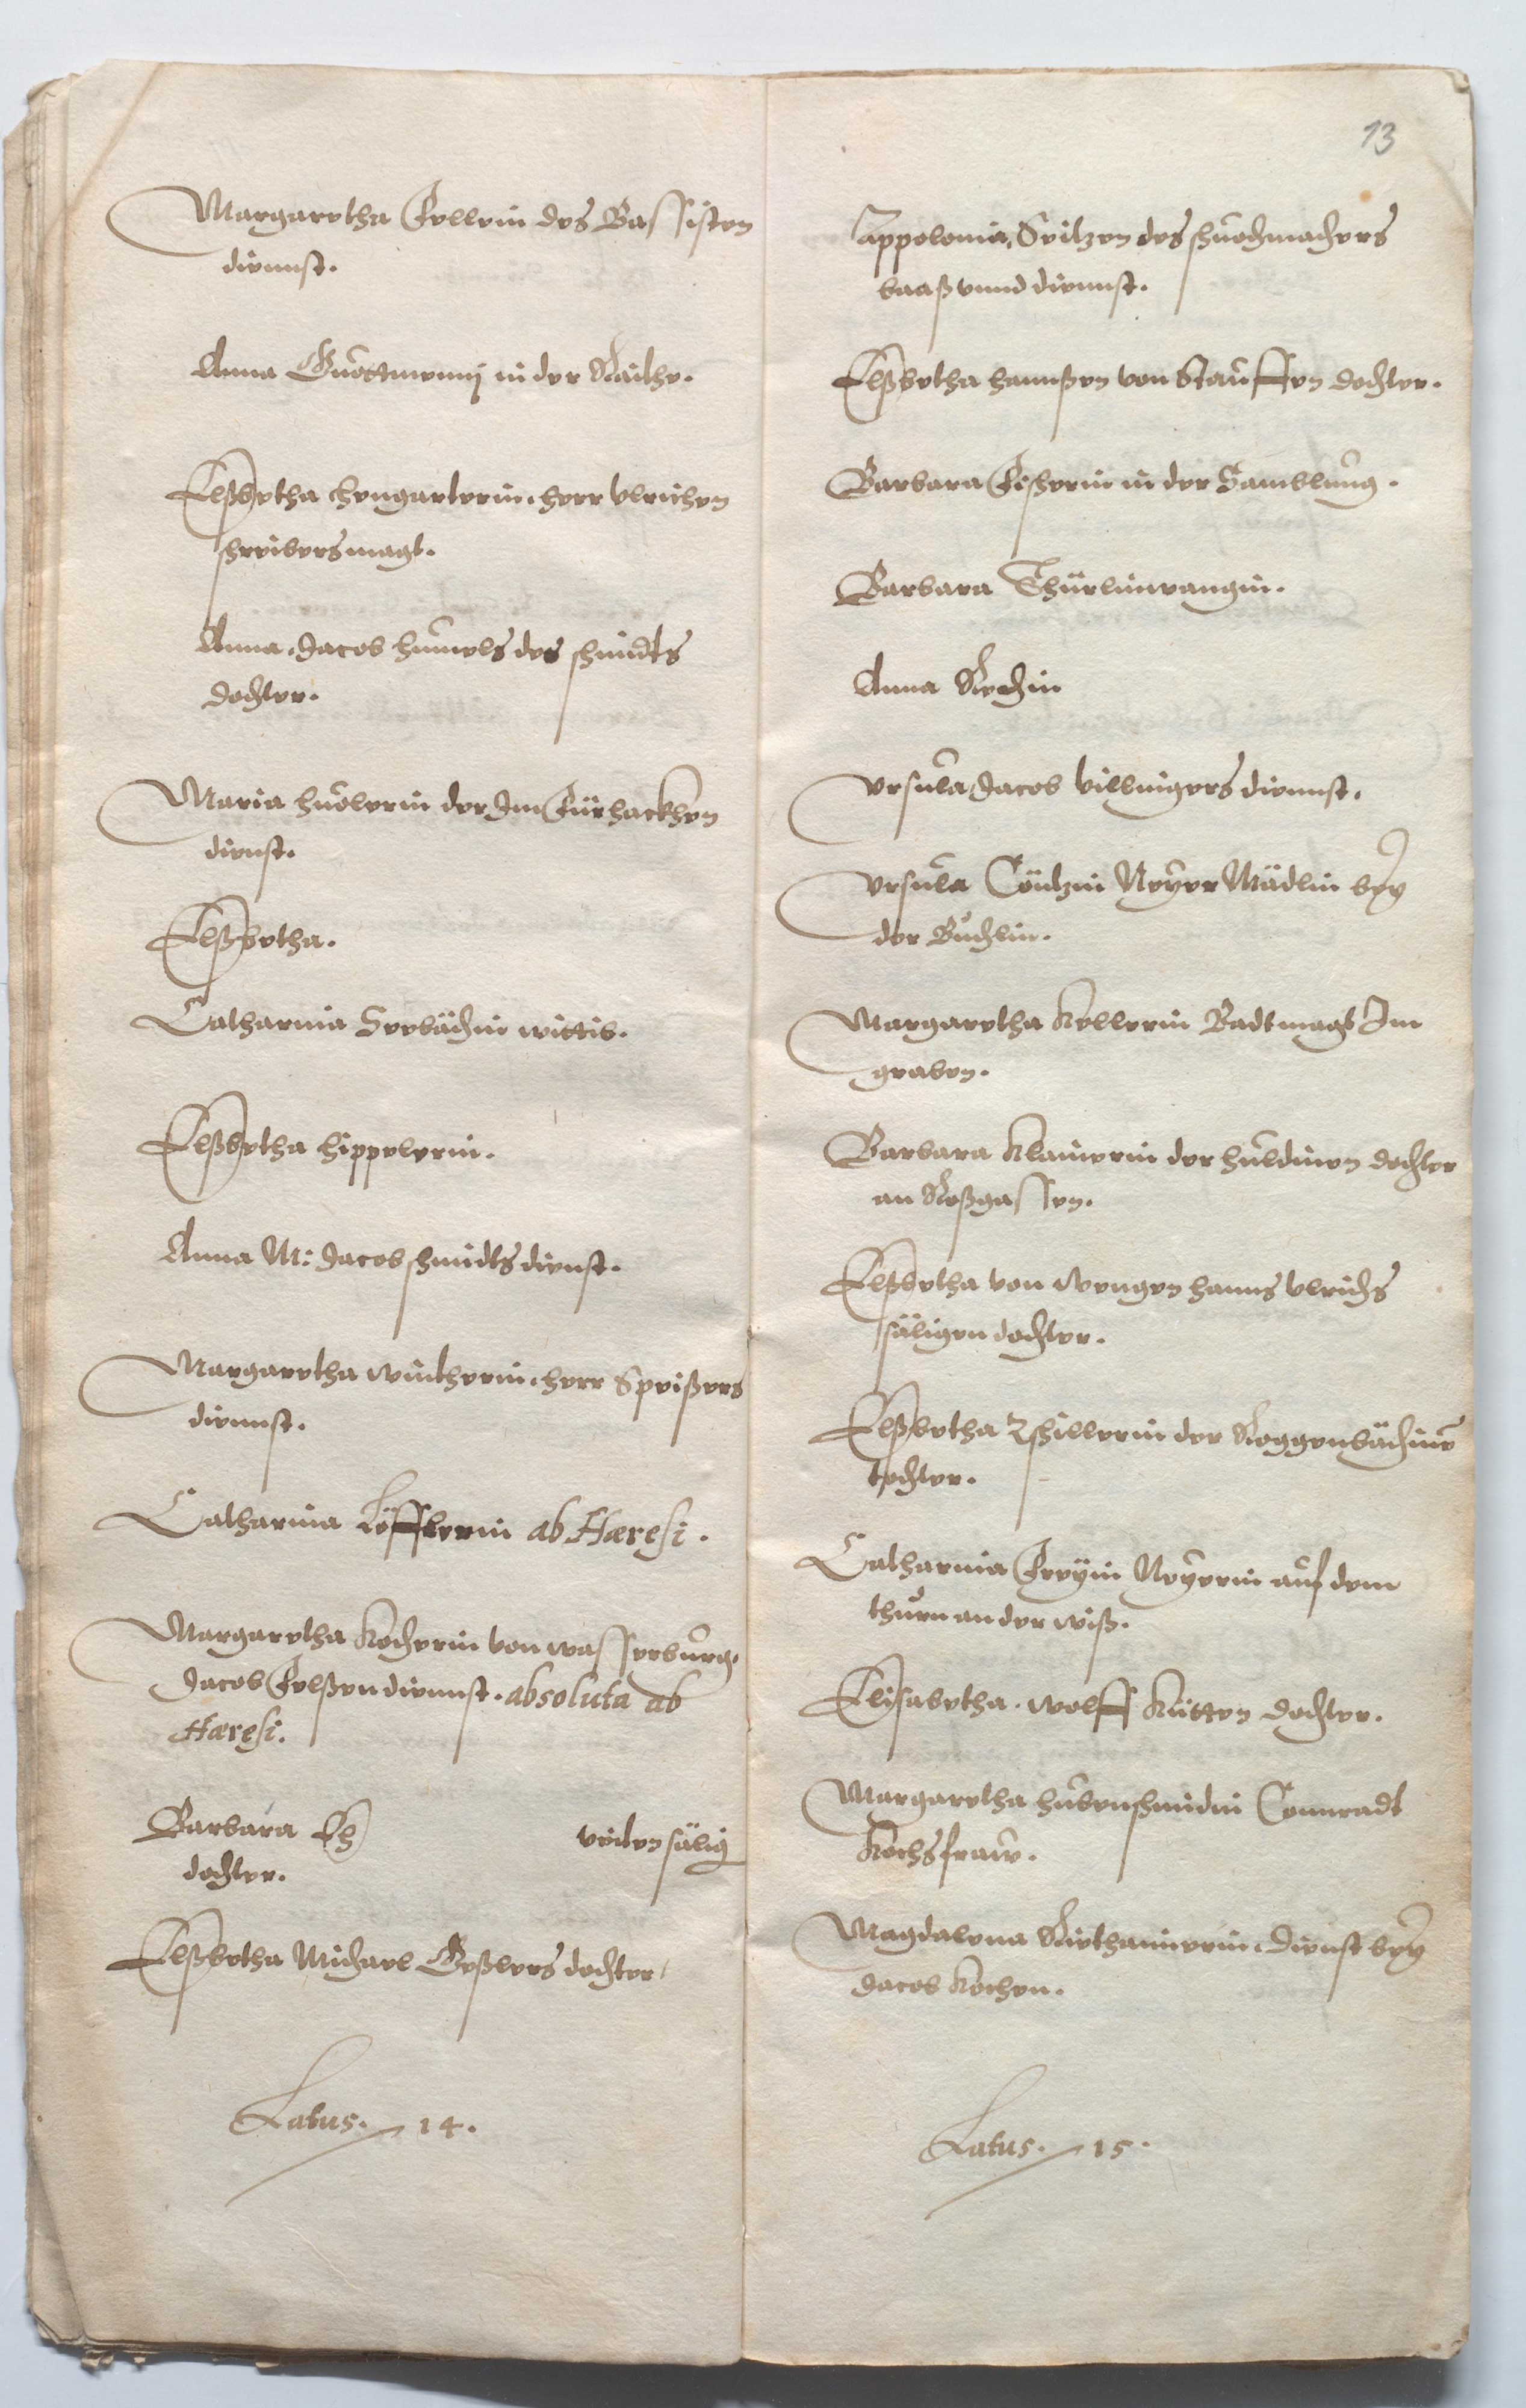 Margaretha Fellerin des Bassisten
diennst.
Anna Guottmennj in der Raithe.
Elßbetha Hengarterin. herr Ulrichen
schreibers magt.
Anna. Jacob humels des schmidts
dochter.
Maria huoberin der Jm Fürhackhen
dienst.
Elßbetha.
Catharina Seebächin wittib.
Elßbetha Hippelerin.
Anna M: Jacob schmidts dienst.
Margaretha wintherin. herr Speißers
diennst.
Catharina Löfflerin ab Hæresi.
Margaretha Kocherin von wasserburg.
Jacob Felßen diennst. absoluta ab
Hæresi.
Barbara veiten sälig
dochter.
Elßbetha Michael Geßlers dochter
Latus. 14.
13
Appolonia Seitzen des schuochmachers
baaß unnd diennst.
Elßbetha hannßen von Stauffen dochter.
Barbara Fischerin in der Samblung.
Barbara Thürlinwangin.
Anna Rechin
Ursula Jacob Villingers diennst.
Ursula Cöntzin Neyer Mädlin bey
der Büchlin.
Margaretha Kellerin Badtmagt Jm
graben.
Barbara Klainerin der huldinen dochter
an Roßgassen.
Elßbetha von wengen hanns Ulrichs
säligen dochter.
Elßbetha Zschillerin der Roggenbächine
tochter.
Catharina Freyin Neyerin auf dem
thurn an der wiß.
Elisabetha. wolff Kütten dochter.
Margaretha hubenschmidin Connradt
Kochs fraw.
Magdalena Riethaimerin. dienst bey
Jacob Kochen.
Latus. 15.